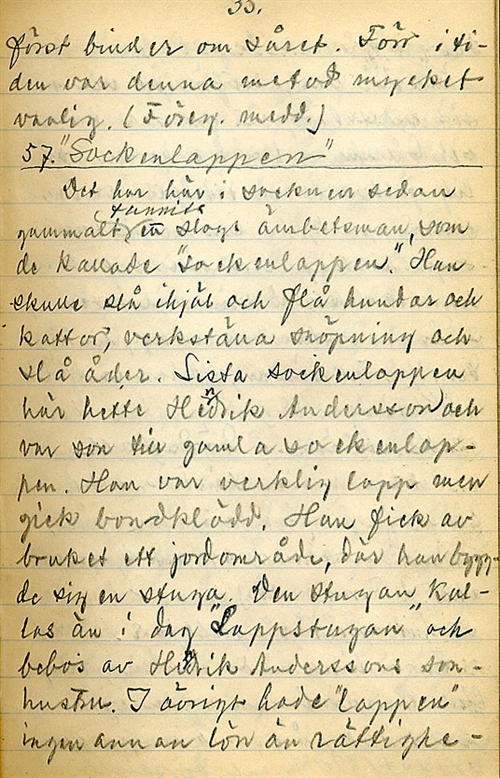 33.
först binder om såret. Förr i ti-
den var denna metod mycket
vanlig. (Föreg. medd.)
57. "Sockenlappen"
Det har här i socknen sedan
gammalt funnits en slags ämbetsman, som
de kallade "sockenlappen." Han
skulle slå ihjäl och flå hundar och
kattor, verkställa snöpning och
slå åder. Sista sockenlappen
här hette Hendrik Andersson och
var son till gamla sockenlap-
pen. Han var verklig lapp men
gick bondklädd. Han fick av
bruket ett jordområde, där han bygg-
de sig en stuga. Den stugan kal-
las än i dag "Lappstugan" och
bebos av Hendrik Anderssons son-
hustru. I övrigt hade "lappen"
ingen annan lön än rättighe-